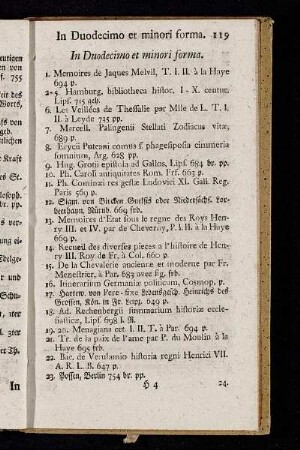 In Duodecimo et minori forma. 119
In Duodecimo et minori forma.
1. Memoires de Jaques Melvil, T. I. II. à la Haye
694 p.
2-5. Hamburg. bibliotheca histor. I - X. centur.
Lips. 715 seqq.
6. Les Veillées de Thessalie par Mlle de L. T. I.
II. à Leyde 735 pp.
7. Marcell. Palingenii Stellati Zodiacus vitae,
689 p.
8. Erycii Puteani comus s. phagesiposia cimmeria
somnium, Arg. 628 pp.
9. Hug. Grotii epistola ad Gallos, Lips. 684 br. pp.
10. Ph. Caroli antiquitates Rom. Frf. 663 p.
11. Ph. Cominaei res gestae Ludovici XI. Gall. Reg.
Paris 569 p.
12. Sigm. von Bircken Guelfis oder Nidersächs. Lor-
beerhayn, Nürnb. 669 frb.
13. Memoires d'Etat sous le regne des Roys Hen-
ry III. et IV. par de Cheverny, P. I. II. à la Haye
669 p.
14. Recueil des diverses pieces a l'histoire de Hen-
ry III. Roy de Fr. à Col. 660 p.
15. De la Chevalerie anciente et moderne par Fr.
Menestrier, à Par. 683 avec fig. frb.
16. Itinerarium Germaniae politicum, Cosmop. p.
17. Lebensgesch. Heinrichs des
Grossen, Kön. in Fr. Leipz. 649 p.
18. Ad. Rechenbergii summarium historiae eccle-
siasticae, Lips. 698 l. B.
19. 20. Menagiana cet. I. II. T. à Par. 694 p.
21. Tr. de la paix de l'ame par P. du Moulin à la
Haye 695 frb.
22. Bac. de Verulamio historia regni Henrici VII.
A. R. L. B. 647 p.
23. Possin, Berlin 754 br. pp.
H 4 24.
In